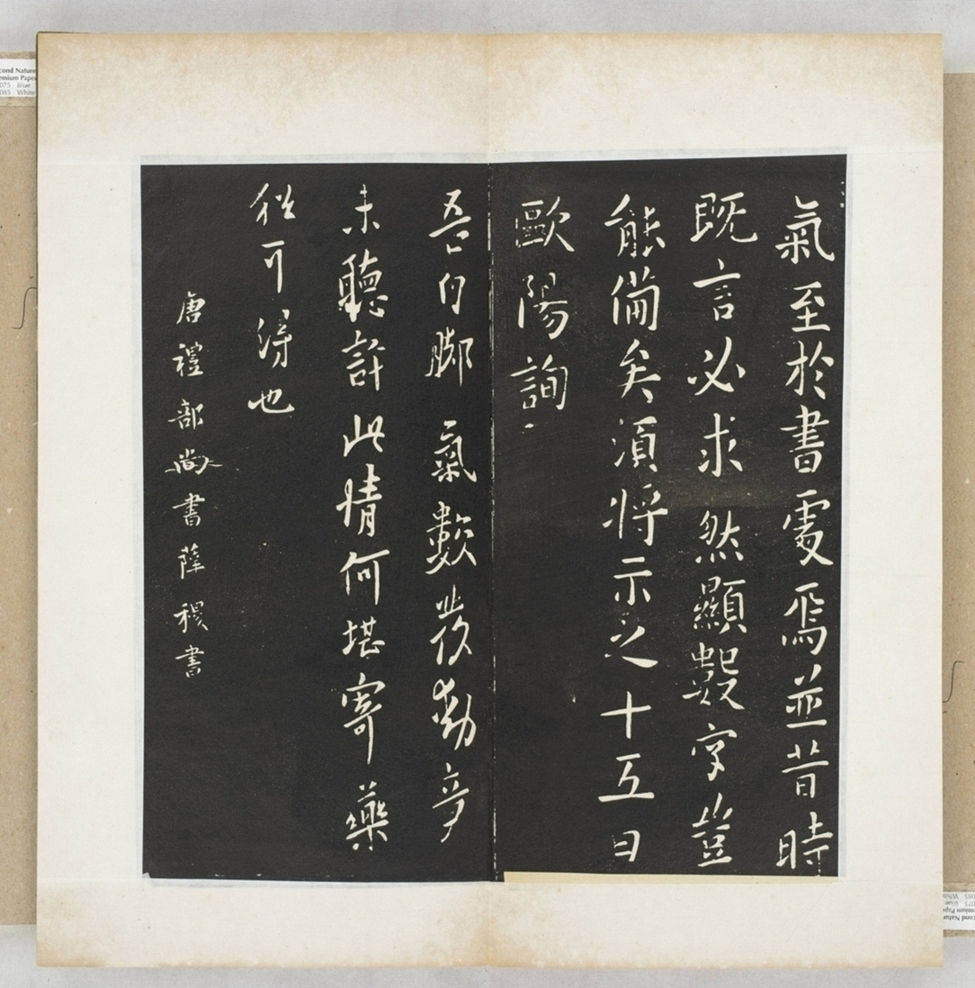 氣至於書處焉並昔時
既言必求然顯數字豈
能備矣須將示之十五日
歐陽詢
吾自腳氣數發動竟
未聽許此情何堪寄藥
猶可得也
唐禮部尚書薛稷書
cond Nature
emium Pape
075 Blue
085 White